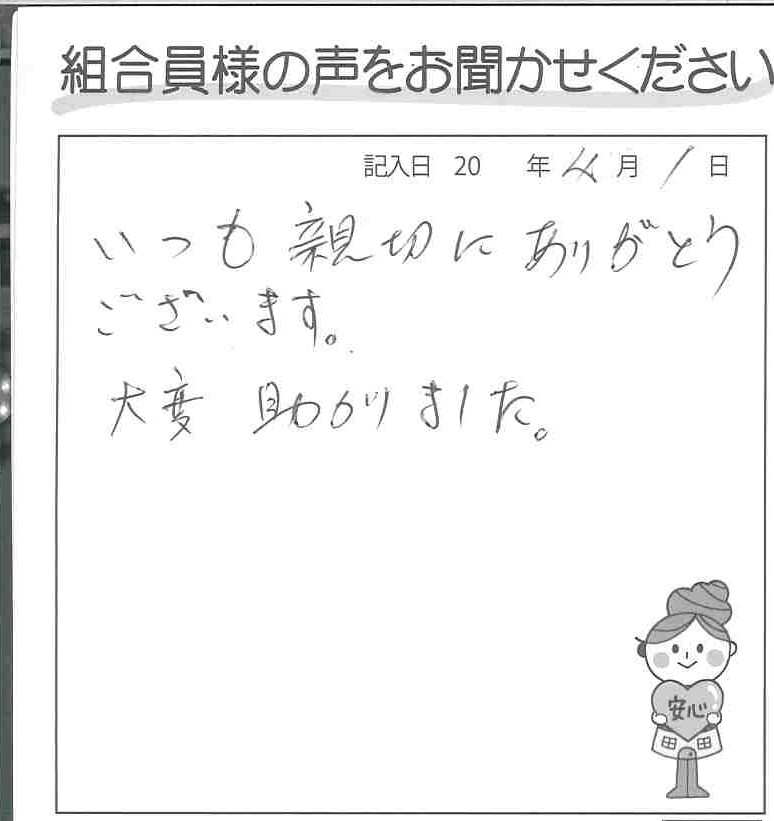 組合員様の声をお聞かせください
記入日 20 年 4月 1日
いつも親切にありがとう
ございます。
大変 助かりました。
安心